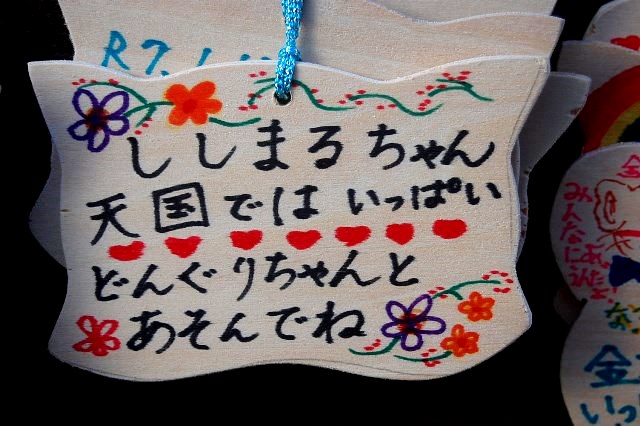 R7.1
ししまるちゃん
天国では いっぱい
どんぐりちゃんと
あそんでね
金
みんなに
金
いっ